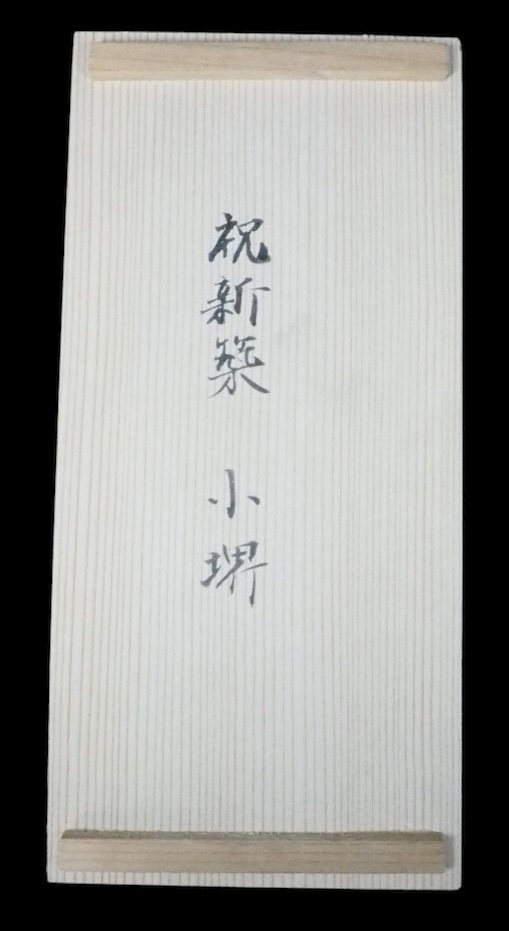 祝新築 小堺